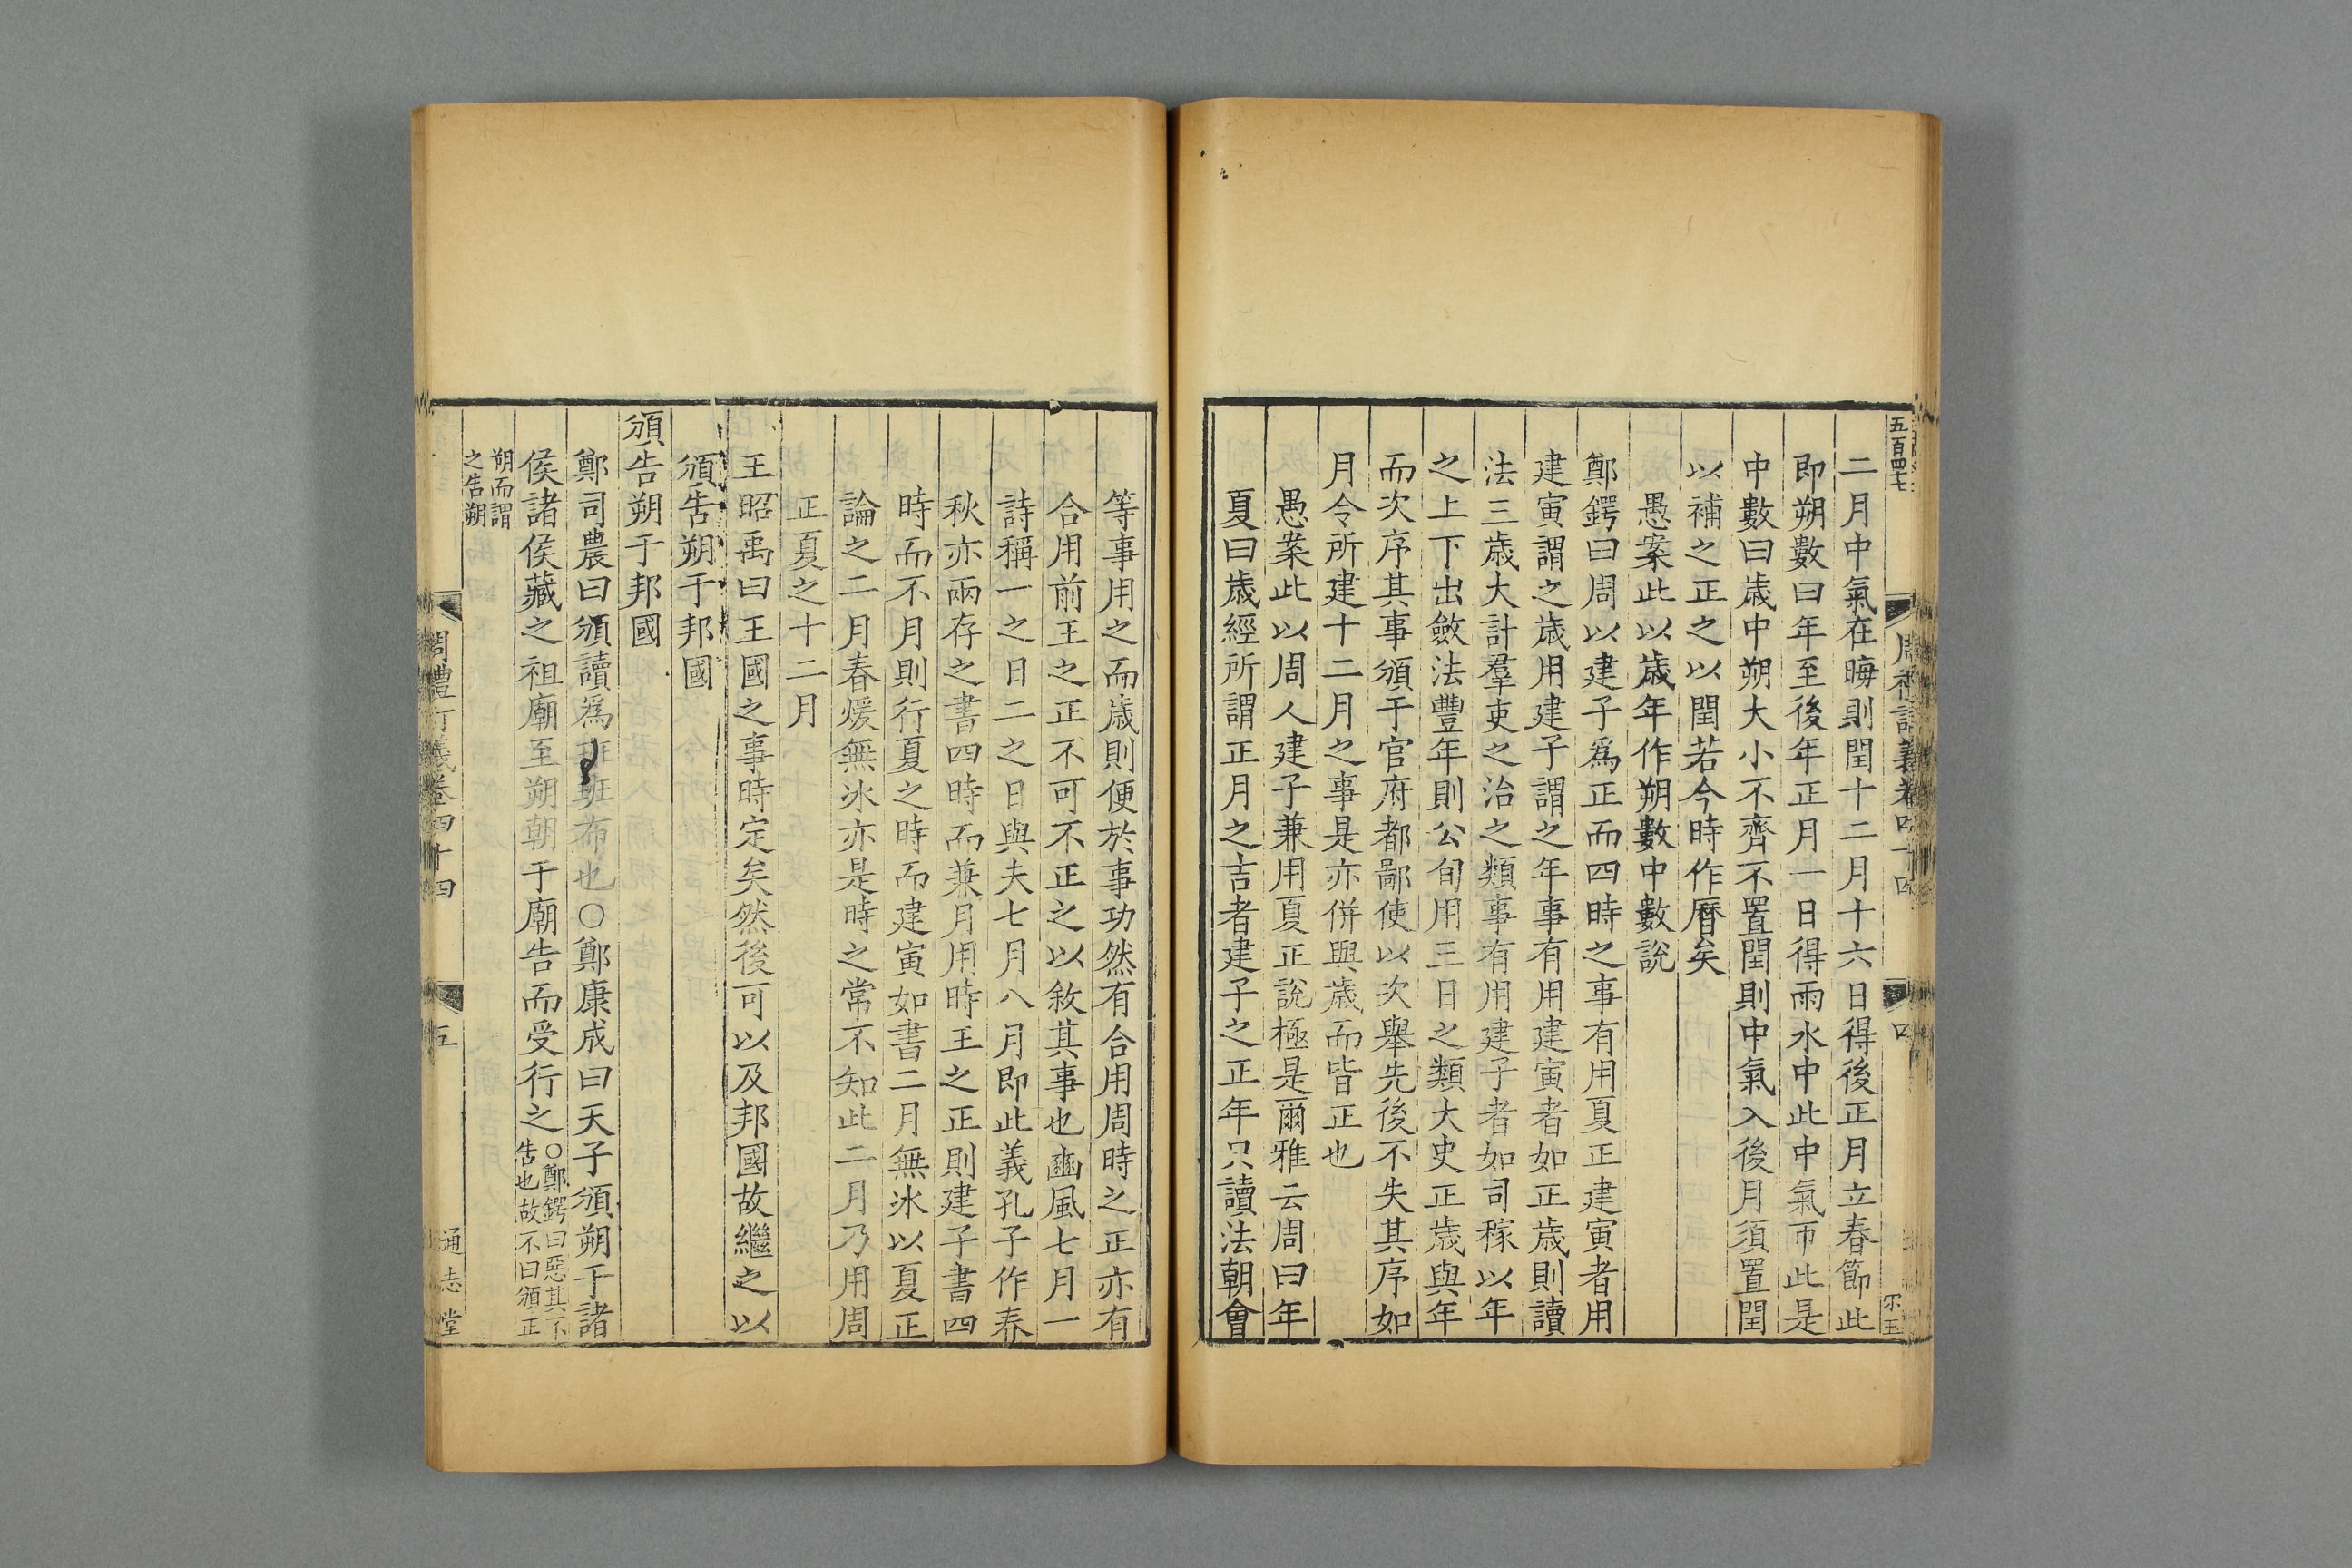 五百四七
周禮訂義卷四十四
四
二月中氣在晦則閏十二月十六日得後正月立春節此
即朔數曰年至後年正月一日得雨水中此中氣帀此是
中數曰歲中朔大小不齊不置閏則中氣入後月須置閏
以補之正之以閏若今時作曆矣
愚案此以歲年作朔數中數說
鄭鍔曰周以建子爲正而四時之事有用夏正建寅者用
建寅謂之歲用建子謂之年事有用建寅者如正歲則讀
法三歲大計羣吏之治之類事有用建子者如司稼以年
之上下出斂法豐年則公旬用三日之類大史正歲與年
而次序其事頒于官府都鄙使以次舉先後不失其序如
月令所建十二月之事是亦併與歲而皆正也
愚案此以周人建子兼用夏正說極是爾雅云周曰年
夏曰歲經所謂正月之吉者建子之正年只讀法朝會
等事用之而歲則便於事功然有合用周時之正亦有
合用前王之正不可不正之以敘其事也豳風七月一
詩稱一之日二之日與夫七月八月即此義孔子作春
秋亦兩存之書四時而兼月用時王之正則建子書四
時而不月則行夏之時而建寅如書二月無冰以夏正
論之二月春煖無冰亦是時之常不知此二月乃用周
正夏之十二月
王昭禹曰王國之事時定矣然後可以及邦國故繼之以
頒告朔于邦國
頒告朔于邦國
鄭司農曰頒讀爲班班布也○鄭康成曰天子頒朔于諸
侯諸侯藏之祖廟至朔朝于廟告而受行之
○鄭鍔曰惡其不
告也故不曰頒正
朔而謂
之告朔
周禮訂義卷四十四
五
通志堂